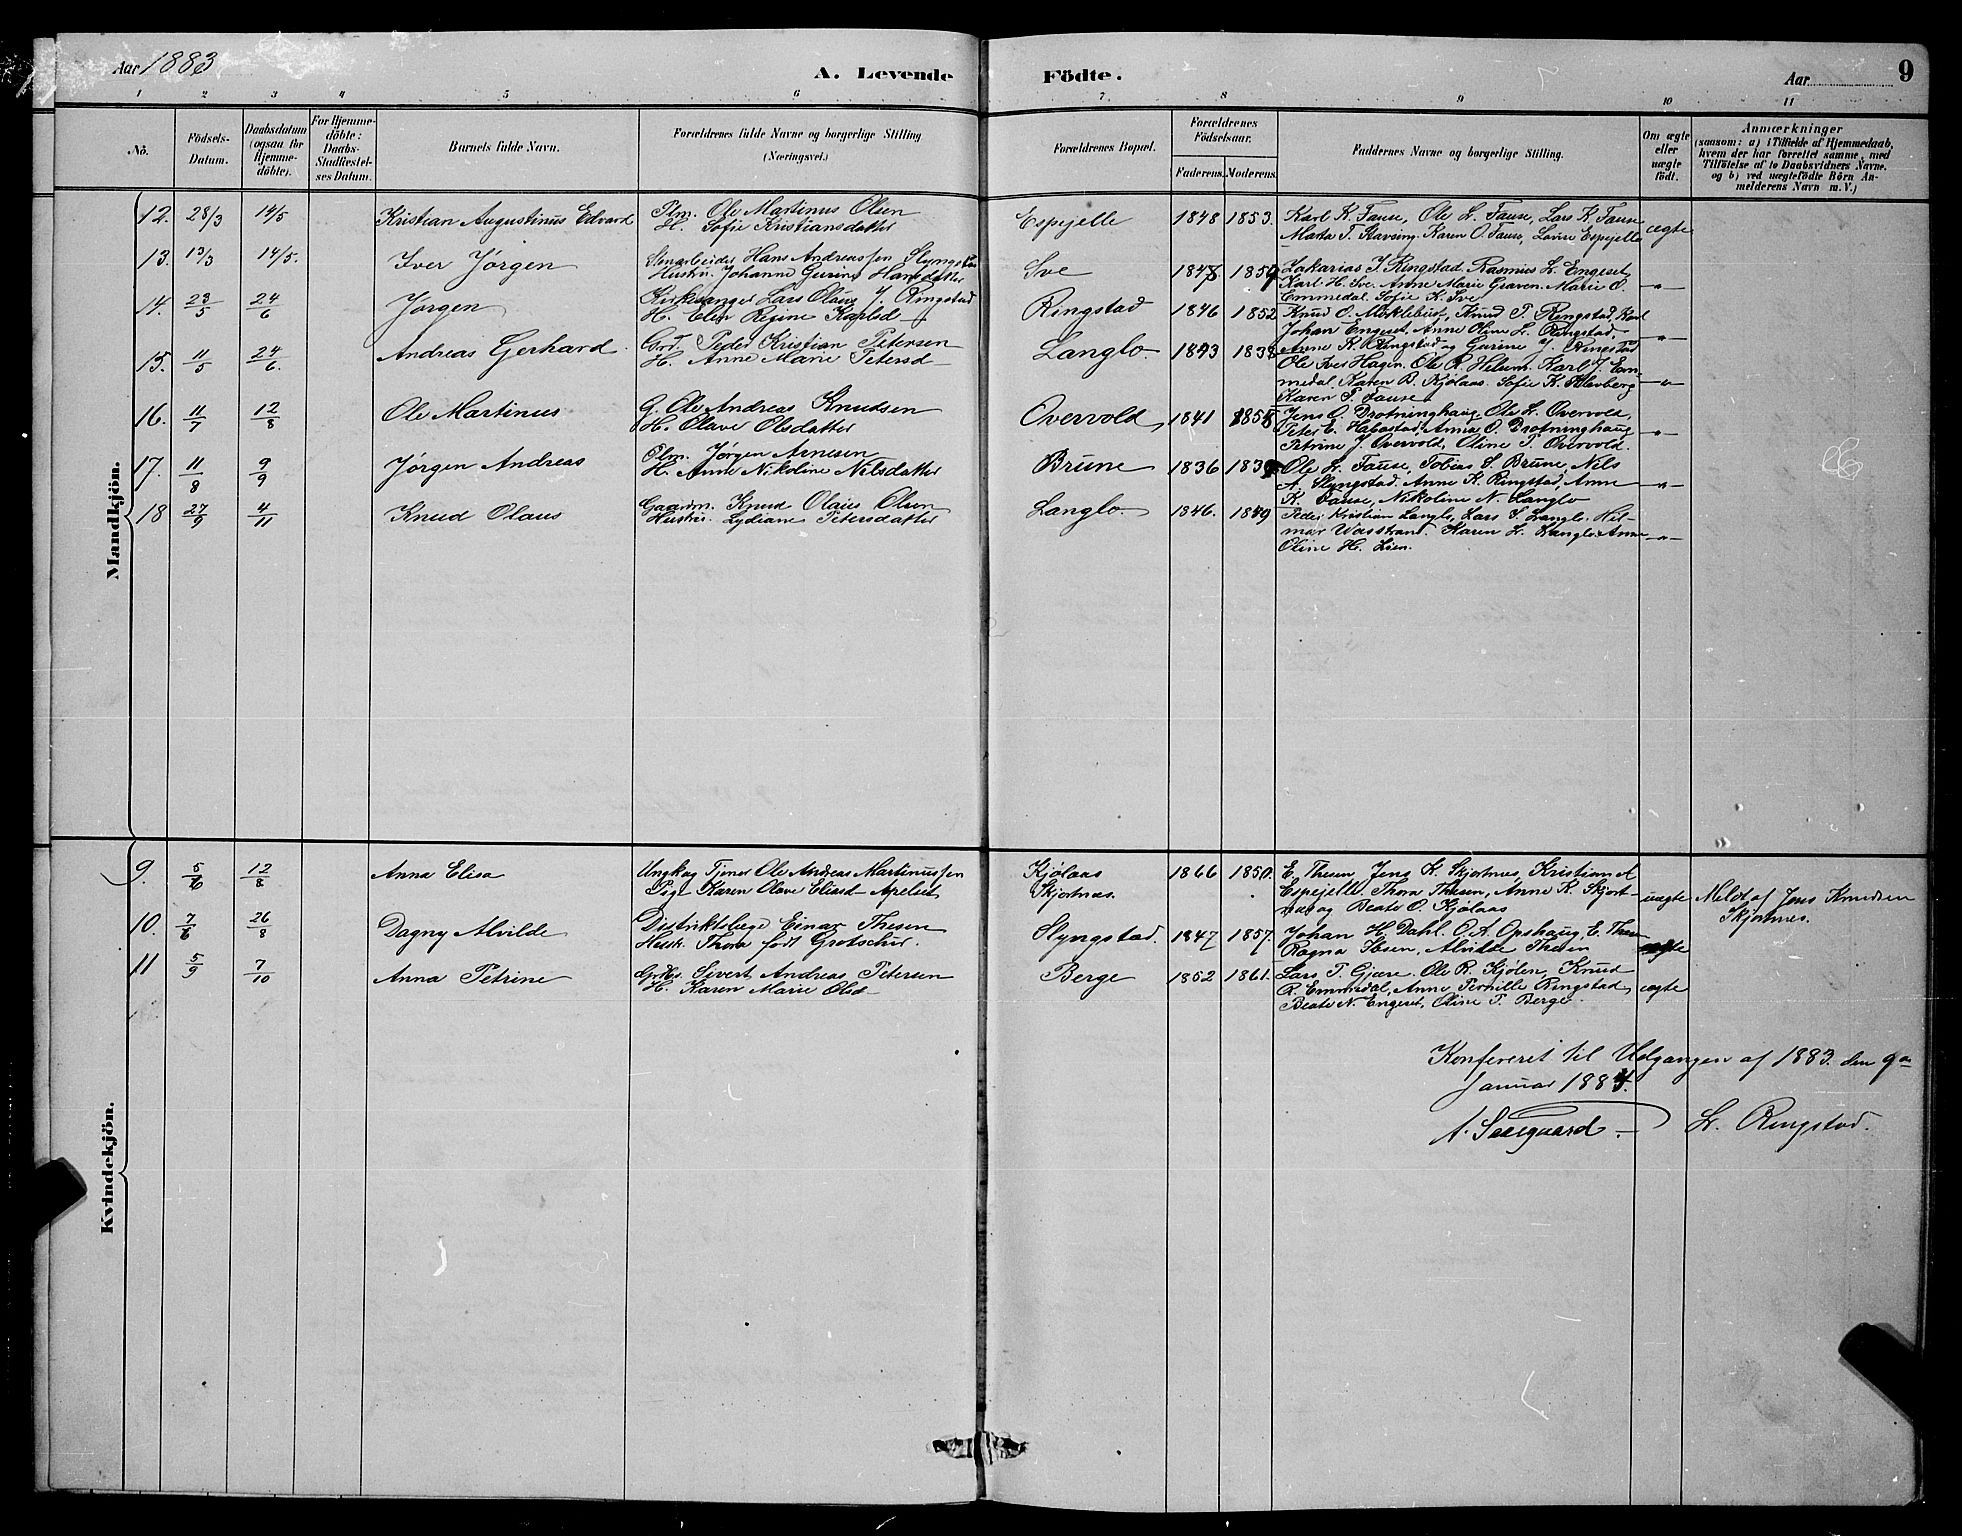 Aar 1883
A. Levende Födte.
Aar
9
1 2 3 4 5 6 7 8 9 10 11
No. Födsels-Datum. Daabsdatum (ogsaa for Hjemme-döbte). For Hjemme-döbte: Daabs-Stadfæstel-ses Datum. Barnets fulde Navn. Forældrenes fulde Navne og borgerlige Stilling (Næringsvei.) Forældrenes Bopæl. Forældrenes Födselsaar. Faderens. Moderens. Faddernes Navne og borgerlige Stilling. Om ægte eller uægte födt. Anmærkninger (saasom: a) i Tilfælde af Hjemmedaab, hvem der har forrettet samme, med Tilföielse af to Daabsvidners Navne, og b) ved uægtefödte Börn An-melderens Navn m. V.)
Mandkjön.
12. 28/3 14/5 Kristian Augustinus Edvard Plm. Ole Martinus Olsen Espejelle 1848 1853. Karl K. Fause, Ole L. Fause, Lars K. Fause ægte
H. Sofie Kristiansdatter Marta T. Stavseng, Karen O. Fause, Lovise Espejelle
13. 13/3 14/5. Iver Jørgen Hans Andreassen Slyngstad Sve Zakarias J. Ringstad. Rasmus L. Engeset,
Hustru Johanne Gurine Hansdatter Karl H. Sve. Anne Marie Graven. Marie O.
Emmedal. Sofie K. Sve "
14. 23/5 24/6 Jørgen Kirkesanger Lars Olaus J. Ringstad Ringstad 1846 1852 Knud O. Myklebust, Knud T. Ringstad, Karl
H. Elen Regine Karlsd Johan Engeset. Anne Oline L. Ringstad. "
15. 11/5 24/6. Andreas Gerhard Grd. Peder Kristian Petersen Langlo 1843 1838 Anne K. Ringstad og Gurine J. Ringstad
H. Anne Marie Petersd Ole Iver Hagen. Ole R. Helsem. Karl J. Em-
medal. Karen B. Kjølaas. Sofie K. Klovberg "
Karen P. Fause
16. 11/7 12/8 Ole Martinus G. Ole Andreas Knudsen Overvold 1841 1855 Jens O. Drotninghaug. Ole L. Overvold,
H. Olave Olsdatter Peter E. Habostad. Anna O. Drotninghaug "
Petrine J. Overvold. Oline P. Overvold.
17. 11/8 9/9 Jørgen Andreas Plm. Jørgen Arnesen Brune 1836 1839 Ole L. Fause, Tobias S. Brune, Nils
H. Anne Nikoline Nilsdatter A. Slyngstad. Anne K. Ringstad. Anne "
K. Fause, Nikoline N. Langlo
18 27/9 4/11 Knud Olaus Gaardm. Knud Olaus Olsen Langlo 1846. 1849 Peder Kristian Langlo, Lars S. Langlo. Hil-
Hustru. Lydiane Petersdatter mar Wasstrand. Karen L. Langlo. Anne
Oline H. Lien. "
Kvindekjön.
9. 5/6 12/8 Anna Elisa Ungkag Tjener Ole Andreas Martinussen Kjølaas 1866 1850. E. Thesen Jens K. Skjortnes, Kristian A
Pige Karen Olave Eliasd Apelset Skjortnes. Espejelle. Thora Thesen, Anne K. Skjort-
nes og Beate O. Kjølaas uægte Meldt af Jens Knudsen Skjortnes.
10. 7/6 26/8 Dagny Alvilde Distriktslæge Einar Thesen Slyngstad. 1847 1857. Johan H. Dahl. O. A. Opshaug E. Thesen
Hustr. Thora født Grotschir. Ragna Ibsen, Alvilde Thesen ægte
11 5/9 7/10 Anna Petrine Grdbr. Sivert Andreas Petersen Berge 1852 1861. Lars P. Gjære. Ole R. Kjølen, Knud
H. Karen Marie Olsd R. Emmedal, Anne Pernille Ringstad, ægte
Beate N. Engeset, Oline P. Berge.
Konfereret til Udgangen af 1883. den 9de
Januar 1884.
A. Saxegaard. L. Ringstad.